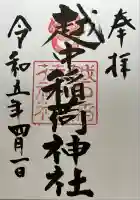 奉拝
越中稲荷神社
令和五年四月一日